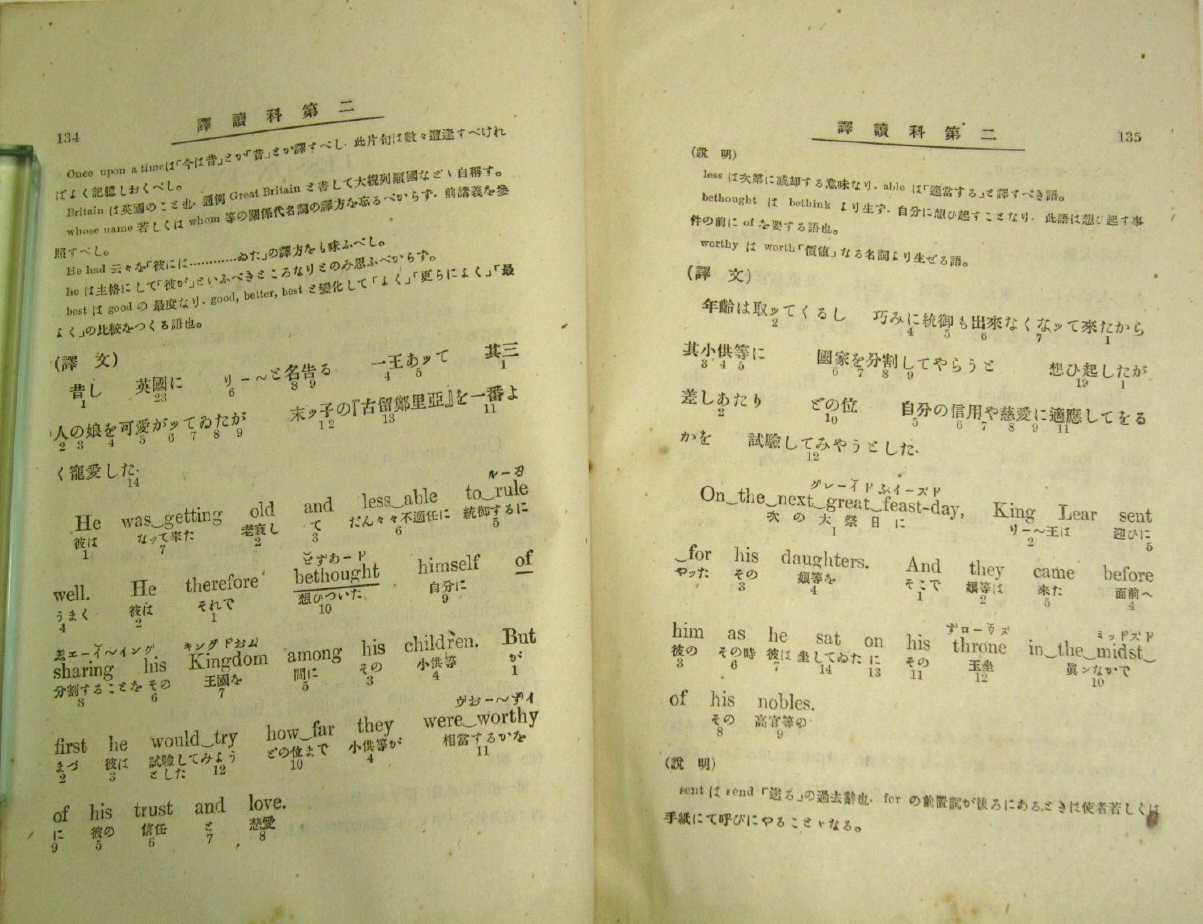 134
譯讀科第二
Once upon a timeは「今は昔」とか「昔」とか譯すべし. 此片句は數々遭逢すべけれ
ばよく記憶しおくべし。
Britain は英國のこと也. 通例 Great Britain と書して大統列顛國などゝ自稱す。
whose name 若しくは whom 等の關係代名詞の譯方を忘るべからず. 前講義を參
照すべし。
He had 云々を「彼には…………ゐた」の譯方をも味ふべし。
he は主格にして「彼が」といふべきところなりとのみ思ふべからず。
best は good の 最度なり. good, better, best と變化して「よく」「更らによく」「最
よく」の比較をつくる語也。
(譯 文)
昔し 英國に リー〜と名告る 一王あッて 其三
1 23 6 8 9 4 5 1
人の娘を可愛がッてゐたが 末ッ子の『古留鄕里亞』を一番よ
2 3 4 5 6 7 8 9 12 13 11
く寵愛した.
14
ルーヲ
He was getting old and less able to rule
彼は なッて來た 老衰し て だん々々不適任に 統御するに
1 7 2 3 6 5
well. He therefore bethought himself of
うまく 彼は それで 想ひついた 自分に
4 2 1 10 9
sharing his Kingdom among his children. But
分割することを その 王國を 間に その 小供等 が
8 6 7 5 3 4 1
first he would try how far they were worthy
まづ 彼は 試驗してみよう どの位まで 小供等が 相當するかを
とした
2 3 12 10 4 11
of his trust and love.
に 彼の 信任 と 慈愛
9 5 6 7 8
譯讀科第二
135
(說 明)
less は次第に減却する意味なり. able は「適當する」と譯すべき語。
bethought は bethink より生ず. 自分に想ひ起すことなり. 此語は想ひ起す事
件の前に of を要する語也。
worthy は worth「價値」なる名詞より生ぜる語。
(譯 文)
年齡は取ッてくるし 巧みに統御も出來なくなッて來たから
2 4 5 6 7 1
其小供等に 國家を分割してやらうと 想ひ起したが
3 4 5 6 7 8 9 19 1
差しあたり どの位 自分の信用や慈愛に適應してをる
2 10 5 6 7 8 9 11
かを 試驗してみやうとした.
12
グレーイド ふイーズド
On the next great feast-day, King Lear sent
次の大祭日に リー〜王は 迎ひに
1 2 5
for his daughters. And they came before
やッた その 孃等を そこで 孃等は 來た 面前へ
3 4 1 2 5 4
him as he sat on his throne in the midst
彼の その時 彼は 坐してゐた に その 玉坐 眞ンなかで
3 6 7 14 13 11 12 10
of his nobles.
その 高官等の
8 9
(說 明)
sent は send 「送る」の過去辭也. for の前置詞が後ろにあるときは使者若しくは
手紙にて呼びにやることゝなる。